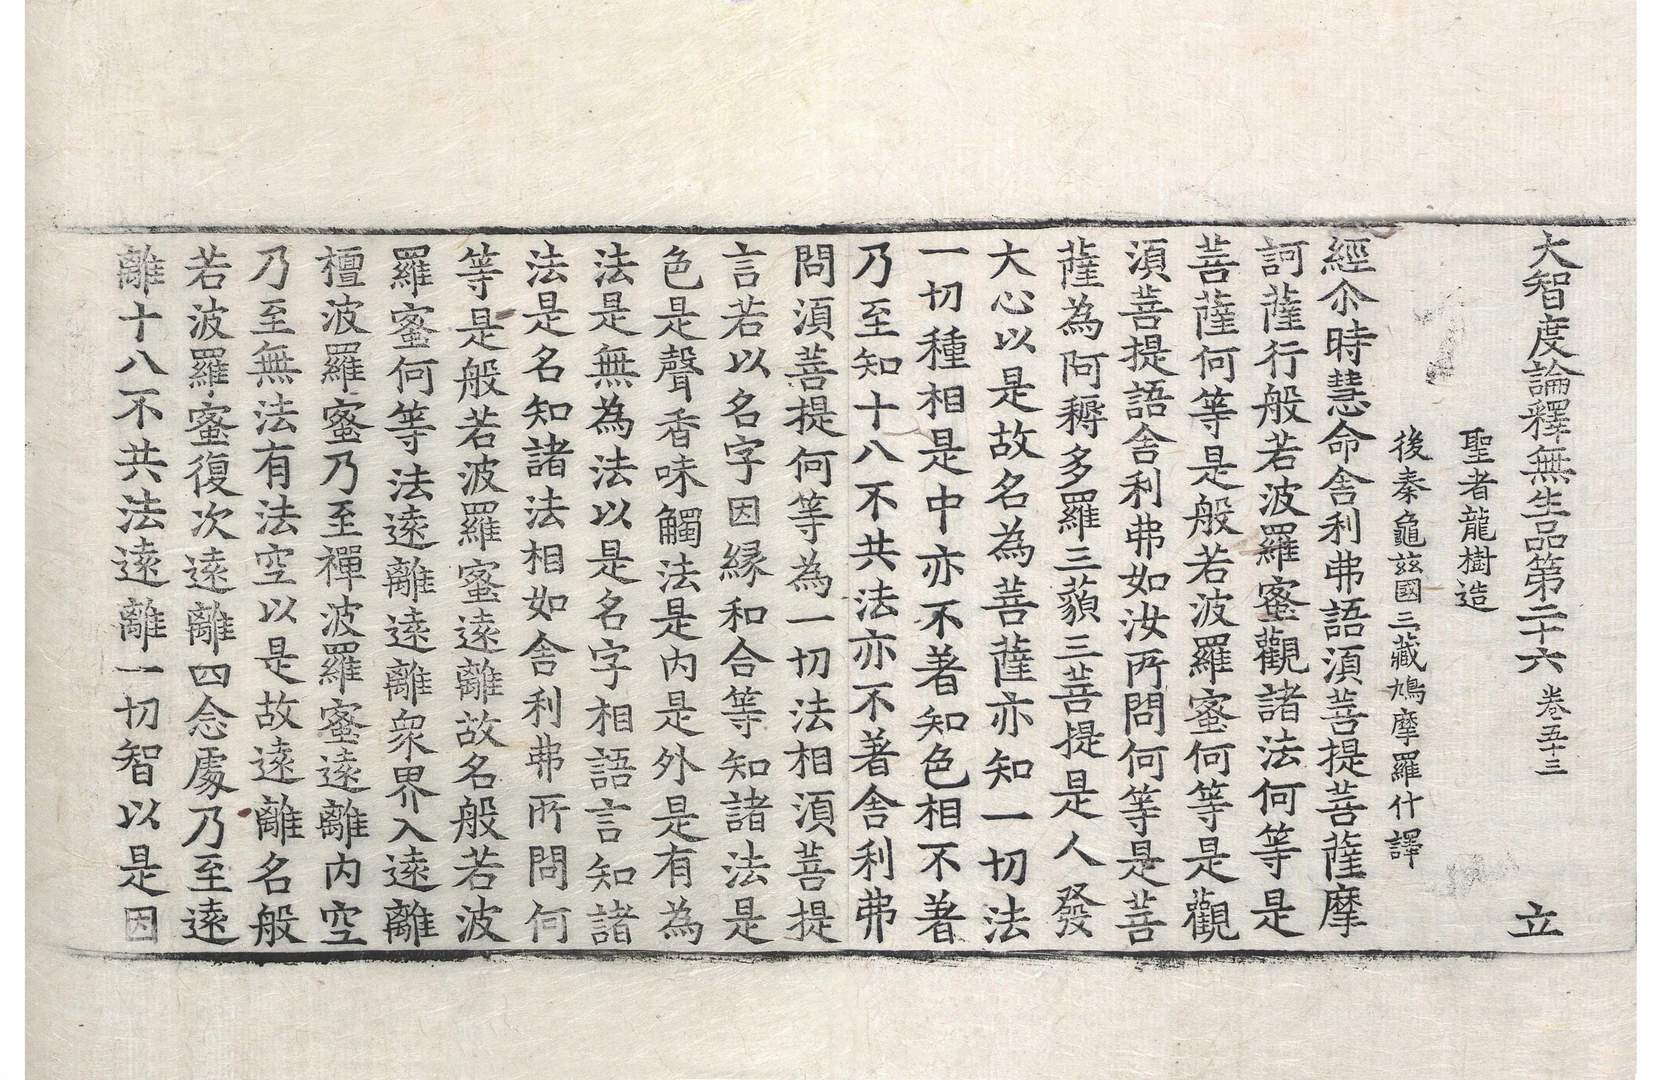 大智度論釋無生品第二十六 卷五十三 立
聖者龍樹造
後秦龜玆國三藏鳩摩羅什譯
經尒時慧命舍利弗語湏菩提菩薩摩
訶薩行般若波羅蜜觀諸法何等是
菩薩何等是般若波羅蜜何等是觀
湏菩提語舍利弗如汝所問何等是菩
薩為阿耨多羅三藐三菩提是人發
大心以是故名為菩薩亦知一切法
一切種相是中亦不著知色相不著
乃至知十八不共法亦不著舍利弗
問湏菩提何等為一切法相湏菩提
言若以名字因縁和合等知諸法是
色是聲香味觸法是內是外是有為
法是無為法以是名字相語言知諸
法是名知諸法相如舍利弗所問何
等是般若波羅蜜遠離故名般若波
羅蜜何等法遠離遠離衆界入遠離
檀波羅蜜乃至禪波羅蜜遠離內空
乃至無法有法空以是故遠離名般
若波羅蜜復次遠離四念處乃至遠
離十八不共法遠離一切智以是因